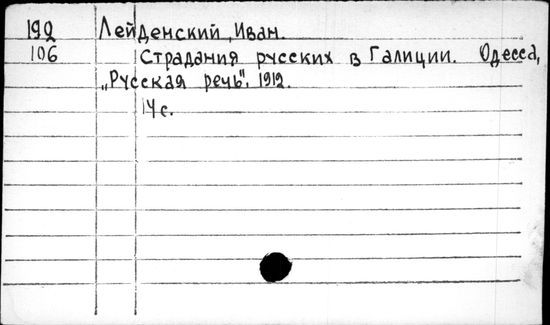 192 Лейденский, Иван.
106 Страдания русских в Галиции. Одесса,
„Русская речь“, 1912.
14 с.